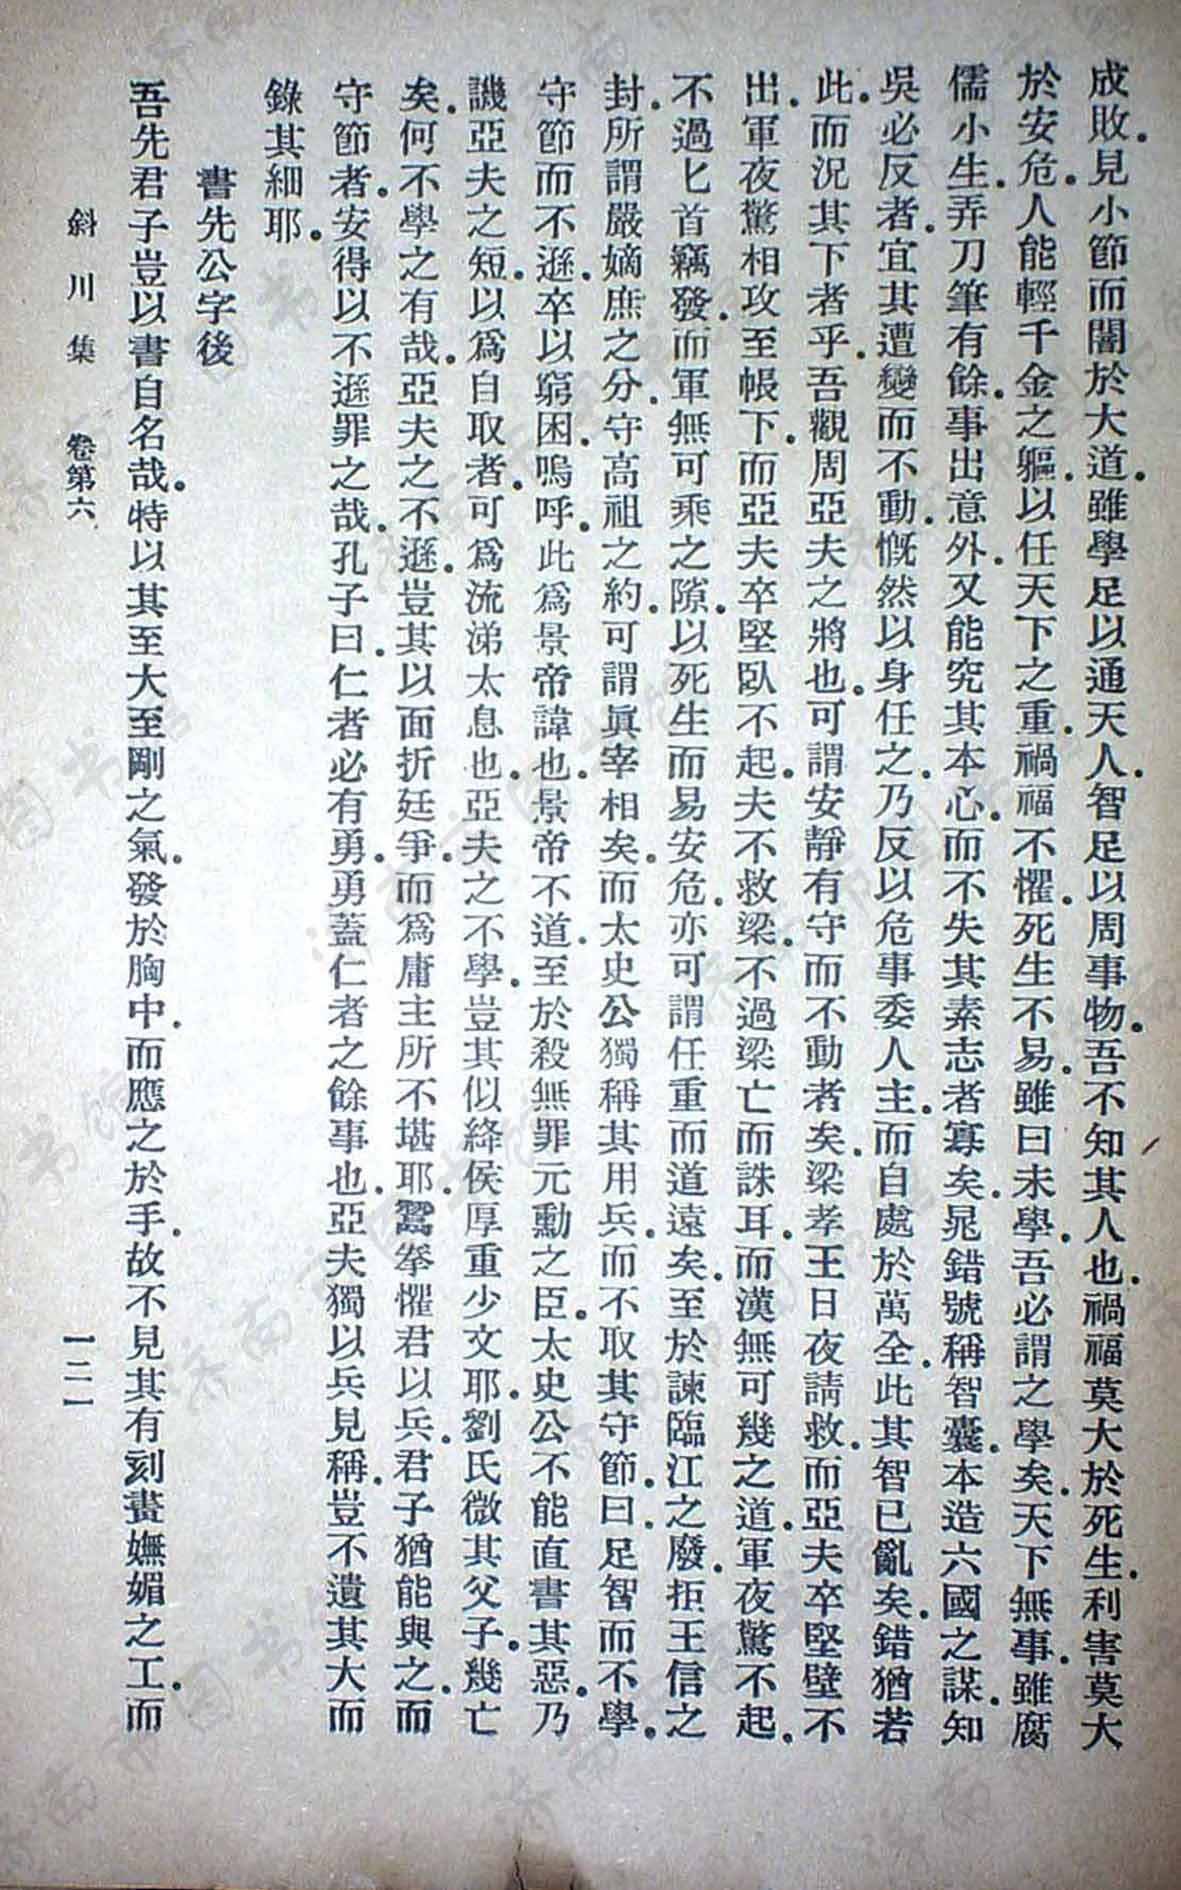 成敗。見小節而闇於大道。雖學足以通天人。智足以周事物。吾不知其人也。禍福莫大於死生。利害莫大
於安危。人能輕千金之軀。以任天下之重。禍福不懼。死生不易。雖曰未學。吾必謂之學矣。天下無事。雖腐
儒小生。弄刀筆有餘。事出意外。又能究其本心。而不失其素志者寡矣。晁錯號稱智囊。本造六國之謀。知
吳必反者。宜其遭變而不動。慨然以身任之。乃反以危事委人主。而自處於萬全。此其智已亂矣。錯猶若
此。而況其下者乎。吾觀周亞夫之將也。可謂安靜有守而不動者矣。梁孝王日夜請救。而亞夫卒堅壁不
出。軍夜驚相攻至帳下。而亞夫卒堅臥不起。夫不救梁。不過梁亡而誅耳。而漢無可幾之道。軍夜驚不起。
不過匕首竊發。而軍無可乘之隙。以死生而易安危。亦可謂任重而道遠矣。至於諫臨江之廢。拒王信之
封。所謂嚴嫡庶之分。守高祖之約。可謂眞宰相矣。而太史公獨稱其用兵。而不取其守節。曰足智而不學。
守節而不遜。卒以窮困。嗚呼。此爲景帝諱也。景帝不道。至於殺無罪元勳之臣。太史公不能直書其惡。乃
譏亞夫之短。以爲自取者。可爲流涕太息也。亞夫之不學。豈其似絳侯厚重少文耶。劉氏微其父子。幾亡
矣。何不學之有哉。亞夫之不遜。豈其以面折廷爭。而爲庸主所不堪耶。鬻拳懼君以兵。君子猶能與之。而
守節者。安得以不遜罪之哉。孔子曰。仁者必有勇。勇蓋仁者之餘事也。亞夫獨以兵見稱。豈不遺其大而
錄其細耶。
書先公字後
吾先君子豈以書自名哉。特以其至大至剛之氣。發於胸中。而應之於手。故不見其有刻畫嫵媚之工。而
斜川集 卷第六 一二一